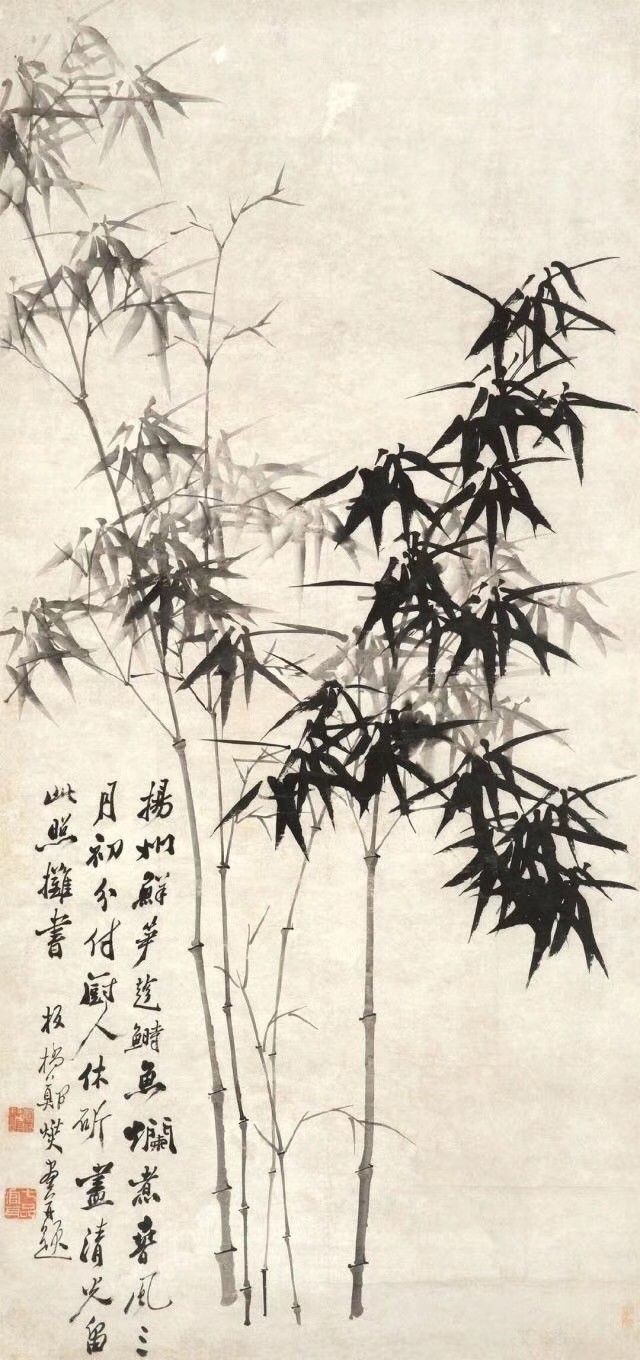 揚州鮮笋趁鰣魚爛煮春風三
月初分付廚人休斫盡清光留
此照攤書 板橋鄭燮畫并題
七品官耳